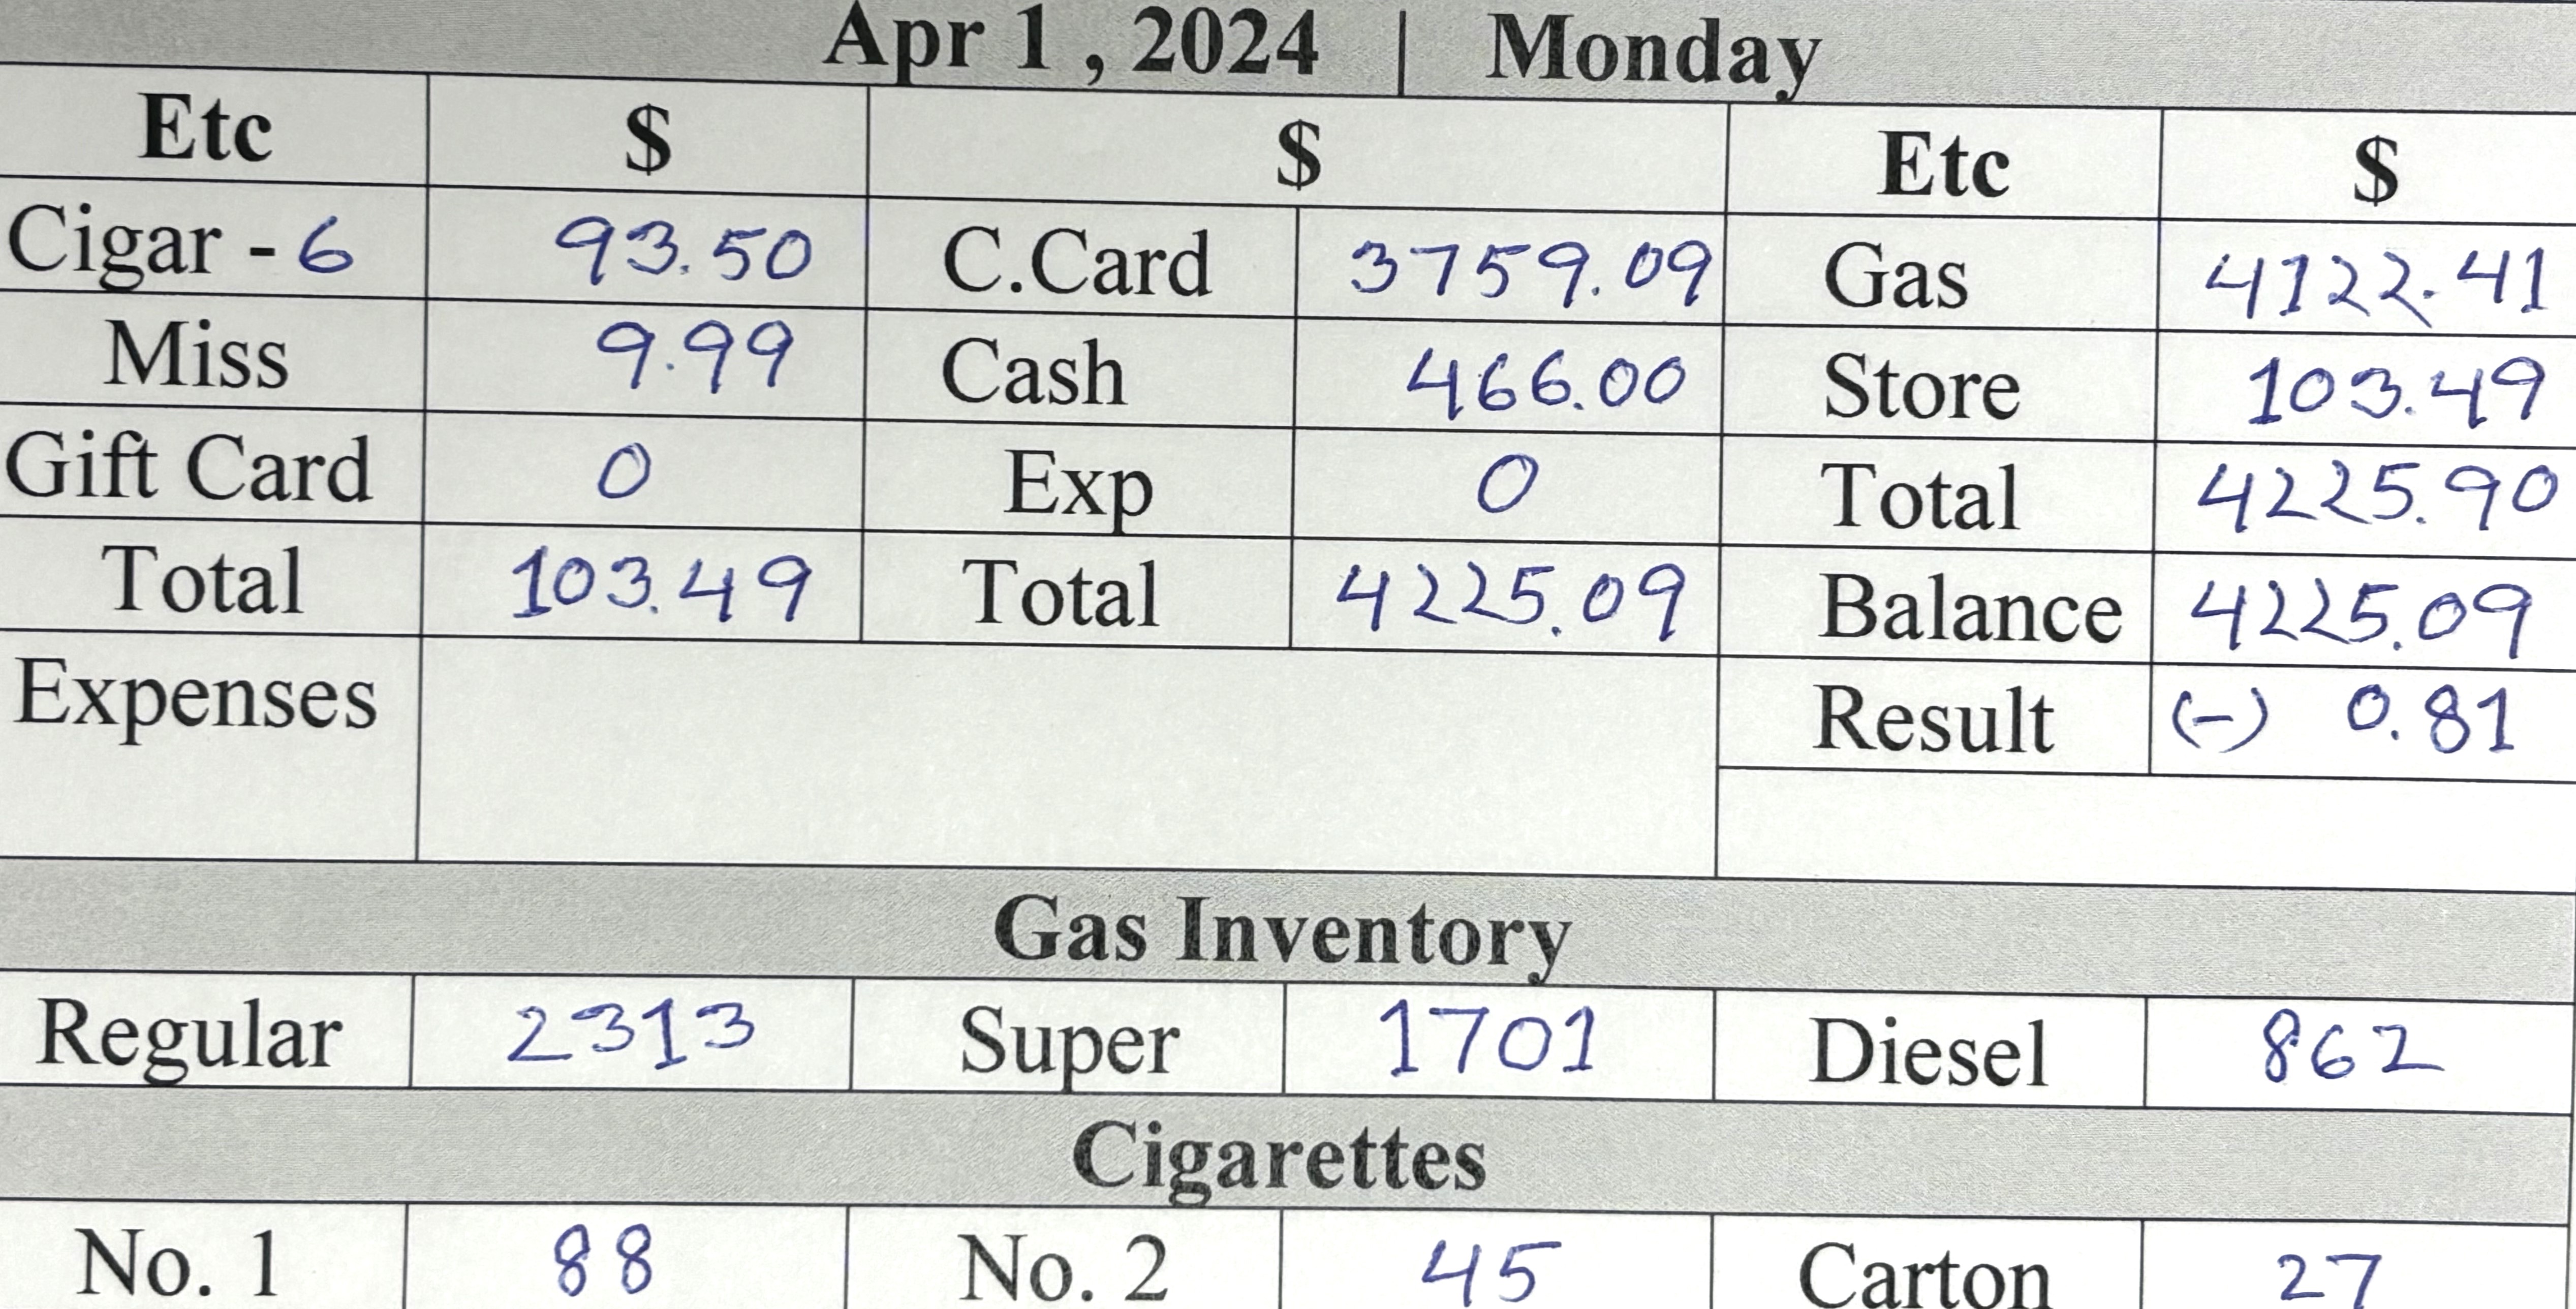 Apr 1 , 2024 | Monday
Etc $ $ Etc $
Cigar - 6 93.50 C.Card 3759.09 Gas 4122.41
Miss 9.99 Cash 466.00 Store 103.49
Gift Card 0 Exp 0 Total 4225.90
Total 103.49 Total 4225.09 Balance 4225.09
Expenses Result (-) 0.81
Gas Inventory
Regular 2313 Super 1701 Diesel 862
Cigarettes
No. 1 88 No. 2 45 Carton 27